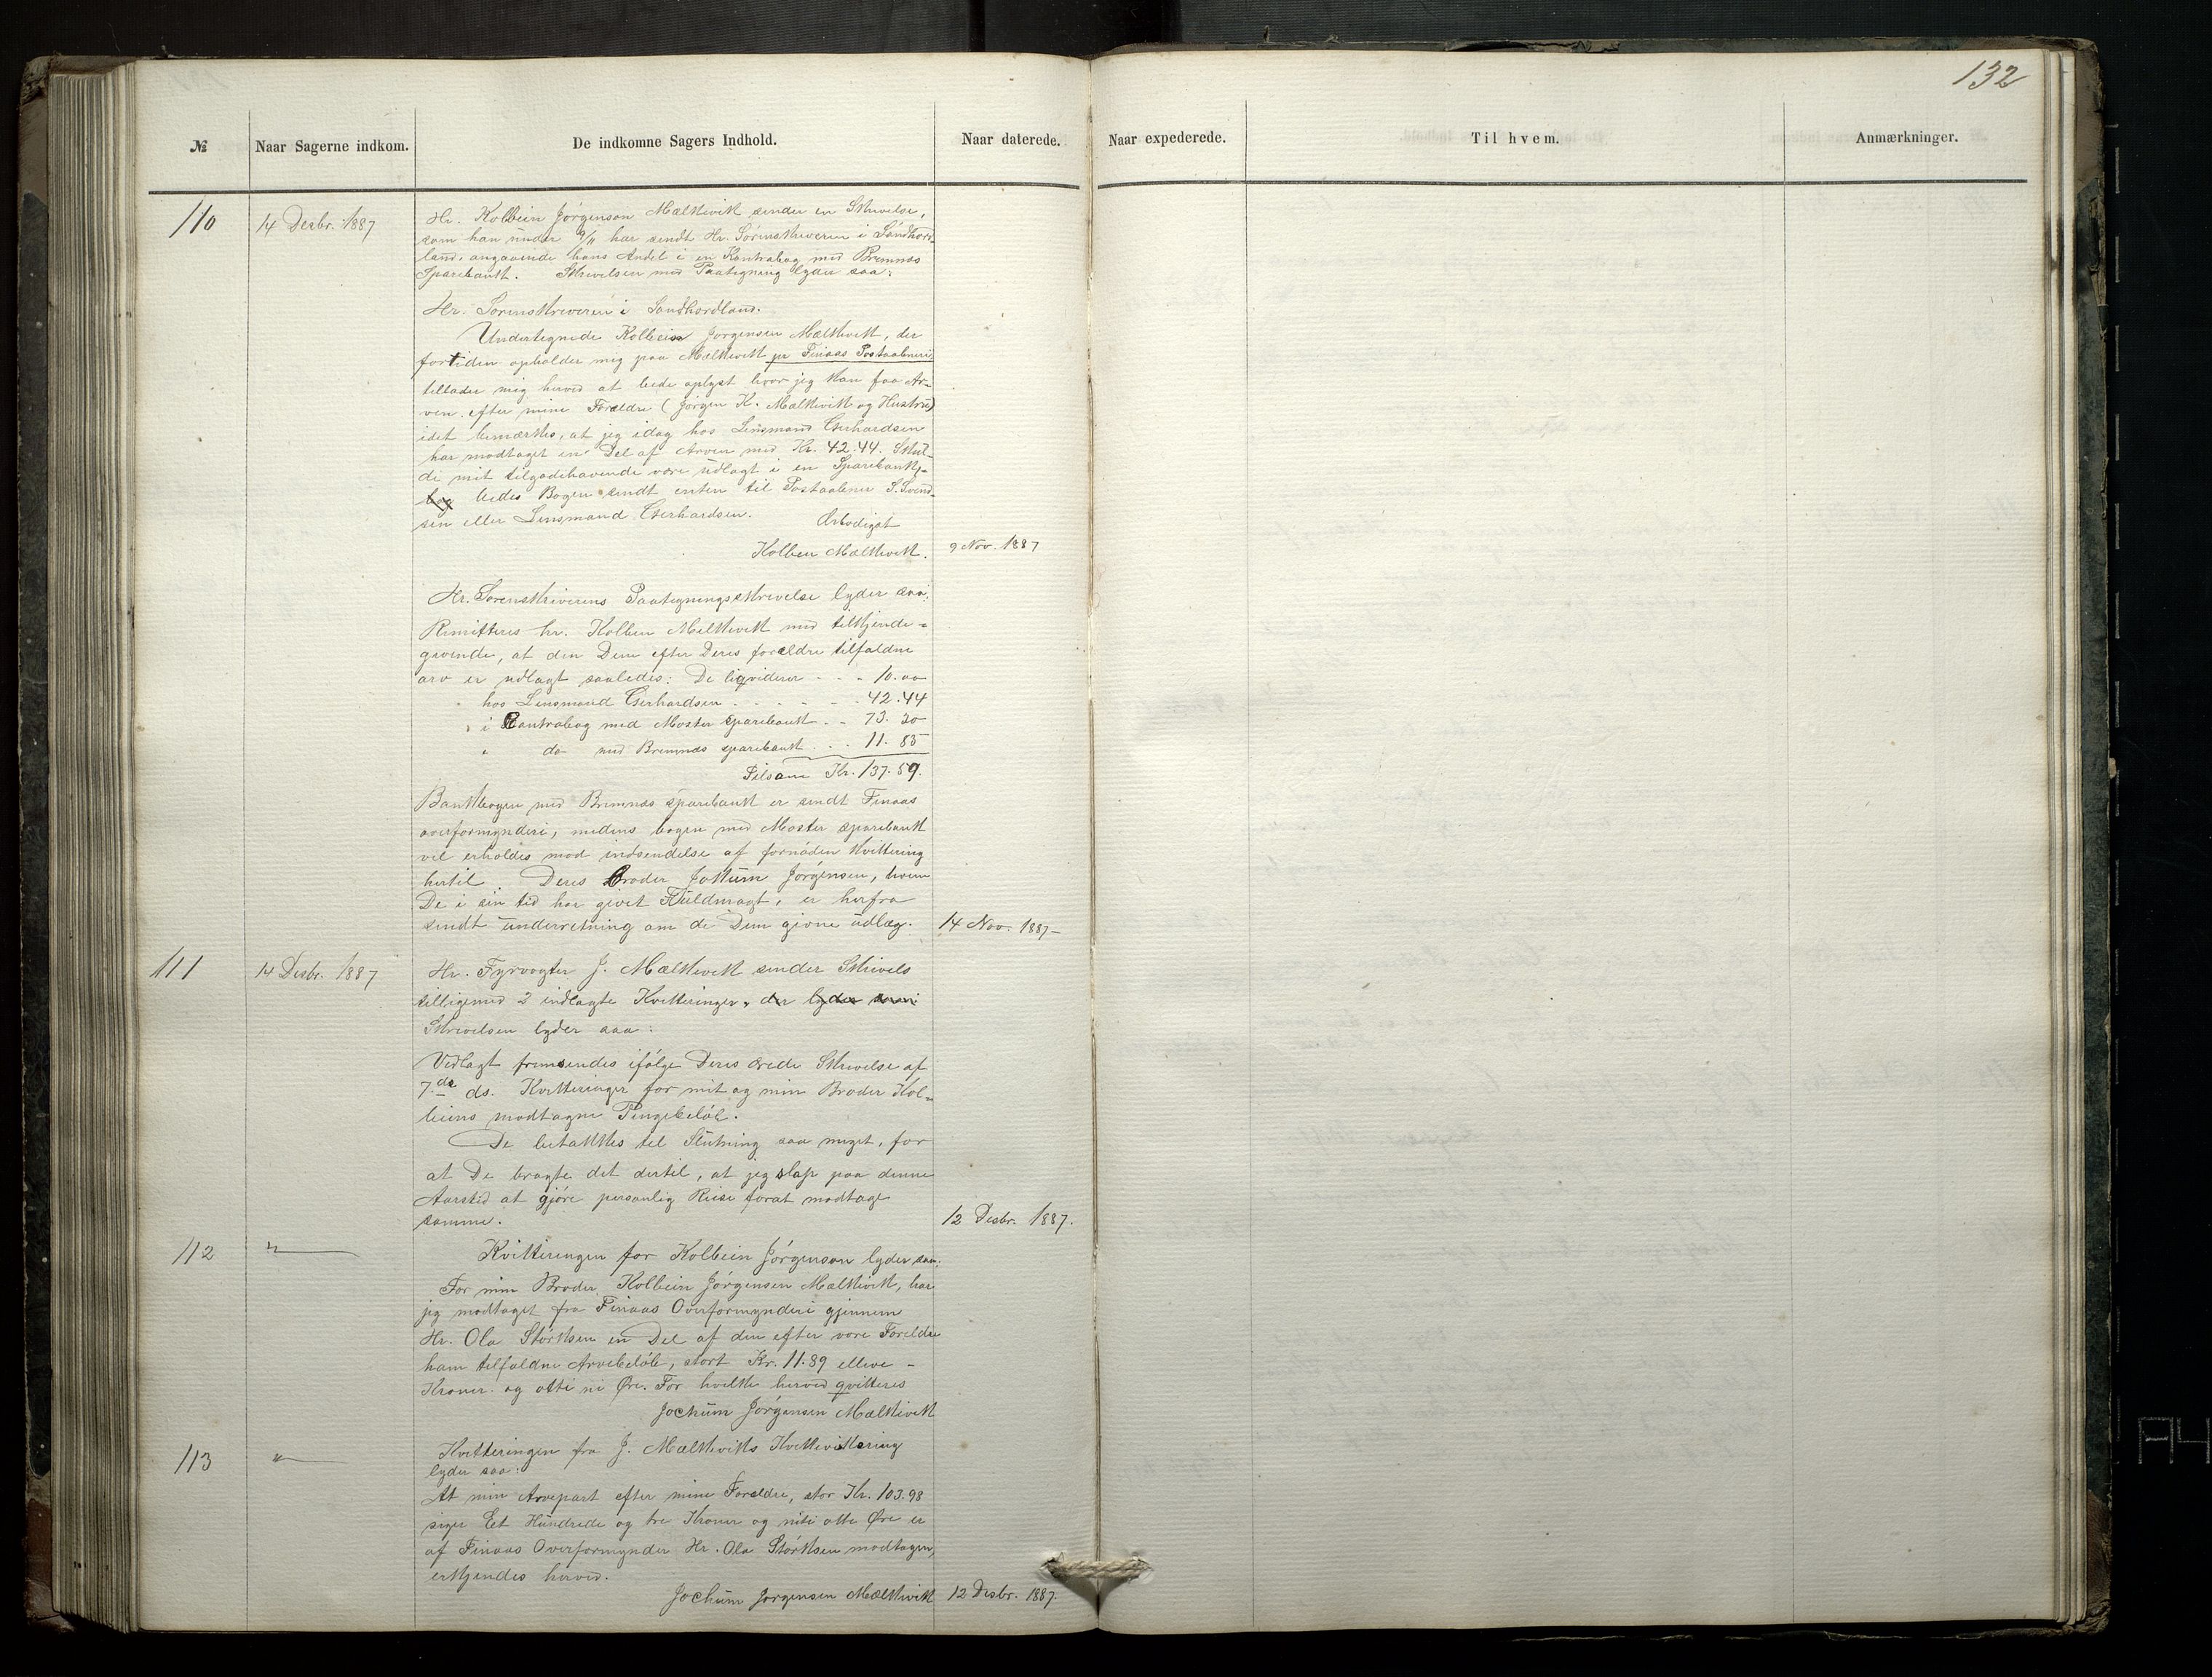 132
№ Naar Sagerne indkom. De indkomne Sagers Indhold. Naar daterede. Naar expederede. Til hvem. Anmærkninger.
110 14 Desbr. 1887 Hr. Kolbein Jörgenson Mælkevik sender en Skrivelse,
som han under 9/11 har sendt Hr. Sörenskriveren i Söndhord-
land. angaaende hans Andel i en Kontrabog med Bremnes
Sparebank. Skrivelsen med Paategning lyder saa:
Hr. Sorenskriveren i Söndhordland.
Undertegnede Kolbein Jorgensen Mælkevik, der
fortiden opholder mig paa Mælkevik pr Finaas Postaabneri
tillader mig herved at bede oplyst hvor jeg kan faa Ar-
ven efter mine Forældre (Jörgen K. Mælkevik og Hustru)
idet bemærkes, at jeg idag hos Lensmand Gerhardsen
har modtaget en Del af Arven med Kr. 42.44. Skul-
de mit tilgodehavende være udlagt i en Sparebank-
bog bedes Bogen sendt enten til Postaabner S. Svend-
sen eller Lensmand Gerhardsen. Ærbødigst
Kolben Mælkevik. 9 Nov. 1887
Hr. Sorenskriverens Paategningsskrivelse lyder saa:
Remitteres hr. Kolben Mælkevik med tilkjende-
givende, at den Dem efter Deres forældre tilfaldne
arv er udlagt saaledes: De ligviderer - - - 10.00
" hos Lensmand Gerhardsen - - - - - 42.44
" i Contrabog med Moster Sparebank - - 73.30
" do med Bremnes sparebank . . . 11.85
Tilsam Kr. 137.59.
Bankbogen med Bremnes sparebank er sendt Finaas
overformynderi, medens bogen med Moster sparebank
vil erholdes mod indsendelse af fornöden kvittering
hertil. Deres Broder Jokum Jörgensen, hvem
De i sin tid har givet Fuldmagt, er herfra
sendt underretning om de Dem givne udlæg. 14 Nov. 1887-
111 14 Desbr. 1887 Hr. Fyrvogter J. Mælkevik sender Skrivels
tilligemed 2 indlagte Kvitteringer, der lyder saa:
Skrivelsen lyder saa:
Vedlagt fremsendes ifölge Deres ærede Skrivelse af
7.de ds. Kvitteringer for mit og min Broder Kol-
beins modtagne Pengebelöb.
De betakkes til Slutning saa meget, for
at De bragte det dertil, at jeg slap paa denne
Aarstid at gjöre personlig Reise forat modtage
samme. 12 Desbr. 1887.
112 " Kvitteringen for Kolbein Jörgenson lyder saa:
For min Broder Kolbein Jörgensen Mælkevik, har
jeg modtaget fra Finaas Overformynderi gjennem
Hr. Ola Störksen en Del af den efter vore Foreldre
ham tilfaldne Arvebelöb, stort Kr. 11.89 elleve -
Kroner og otti ni Øre. For hvilke herved qvitteres
Jochum Jörgensen Mælkevik
113 " Kvitteringen fra J. Mælkeviks Kvikvittering
lyder saa:
At min Arvepart efter mine Foreldre, stor Kr. 103.98
siger Et Hundrede og tre Kroner og niti otte Øre er
af Finaas Overformynder Hr. Ola Störksen modtagen,
erkjendes herved.
Jochum Jorgensen Mælkevik 12 Desbr. 1887.